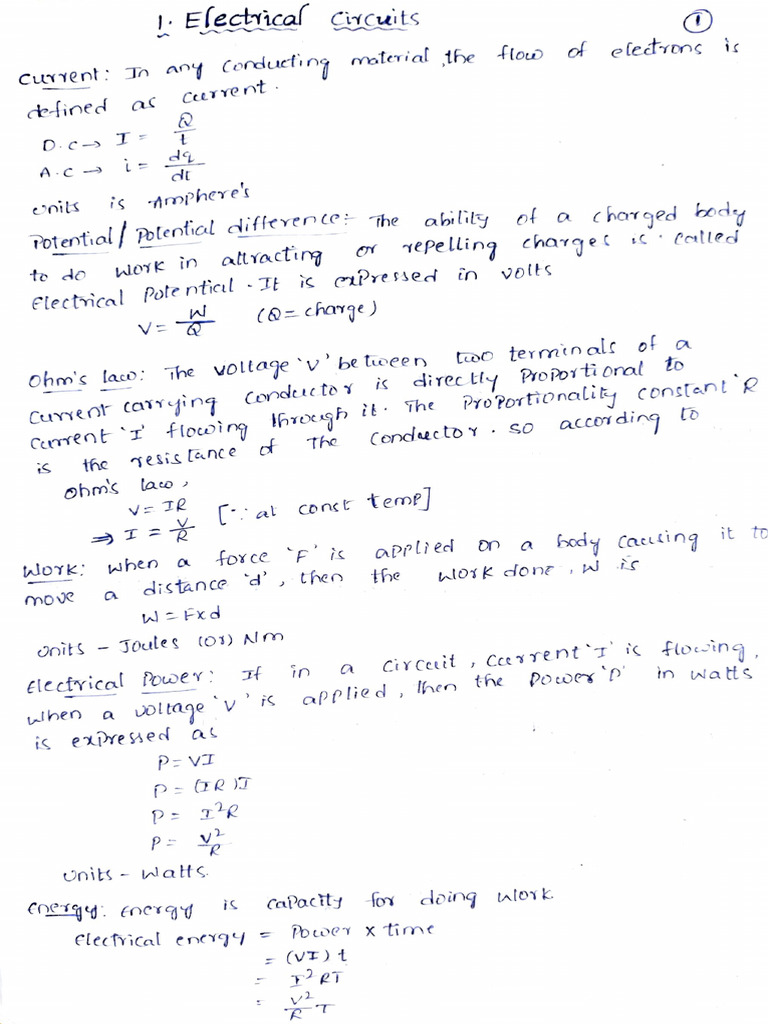 1. Electrical Circuits
①
Current: In any conducting material, the flow of electrons is
defined as current.
D.C → I = Q/t
A.C → i = dq/dt
units is Amphere's
Potential / Potential difference:- The ability of a charged body
to do work in attracting or repelling charges is called
Electrical Potential. It is expressed in volts
V = W/Q (Q = charge)
Ohm's law: The voltage 'V' between two terminals of a
current carrying conductor is directly Proportional to
current 'I' flowing through it. The Proportionality constant 'R
is the resistance of The conductor. so according to
Ohm's law,
V = IR
⇒ I = V/R [∵ at const temp]
Work: When a force 'F' is applied on a body causing it to
move a distance 'd', then the work done, W is
W = F x d
units - Joules (or) Nm
Electrical Power: If in a circuit, current 'I' is flowing,
when a voltage 'V' is applied, then the power 'P' in watts
is expressed as
P = VI
P = (IR)I
P = I²R
P = V²/R
Units - Watts.
Energy: Energy is capacity for doing work.
Electrical energy = Power x time
= (VI) t
= I² RT
= V²/R T